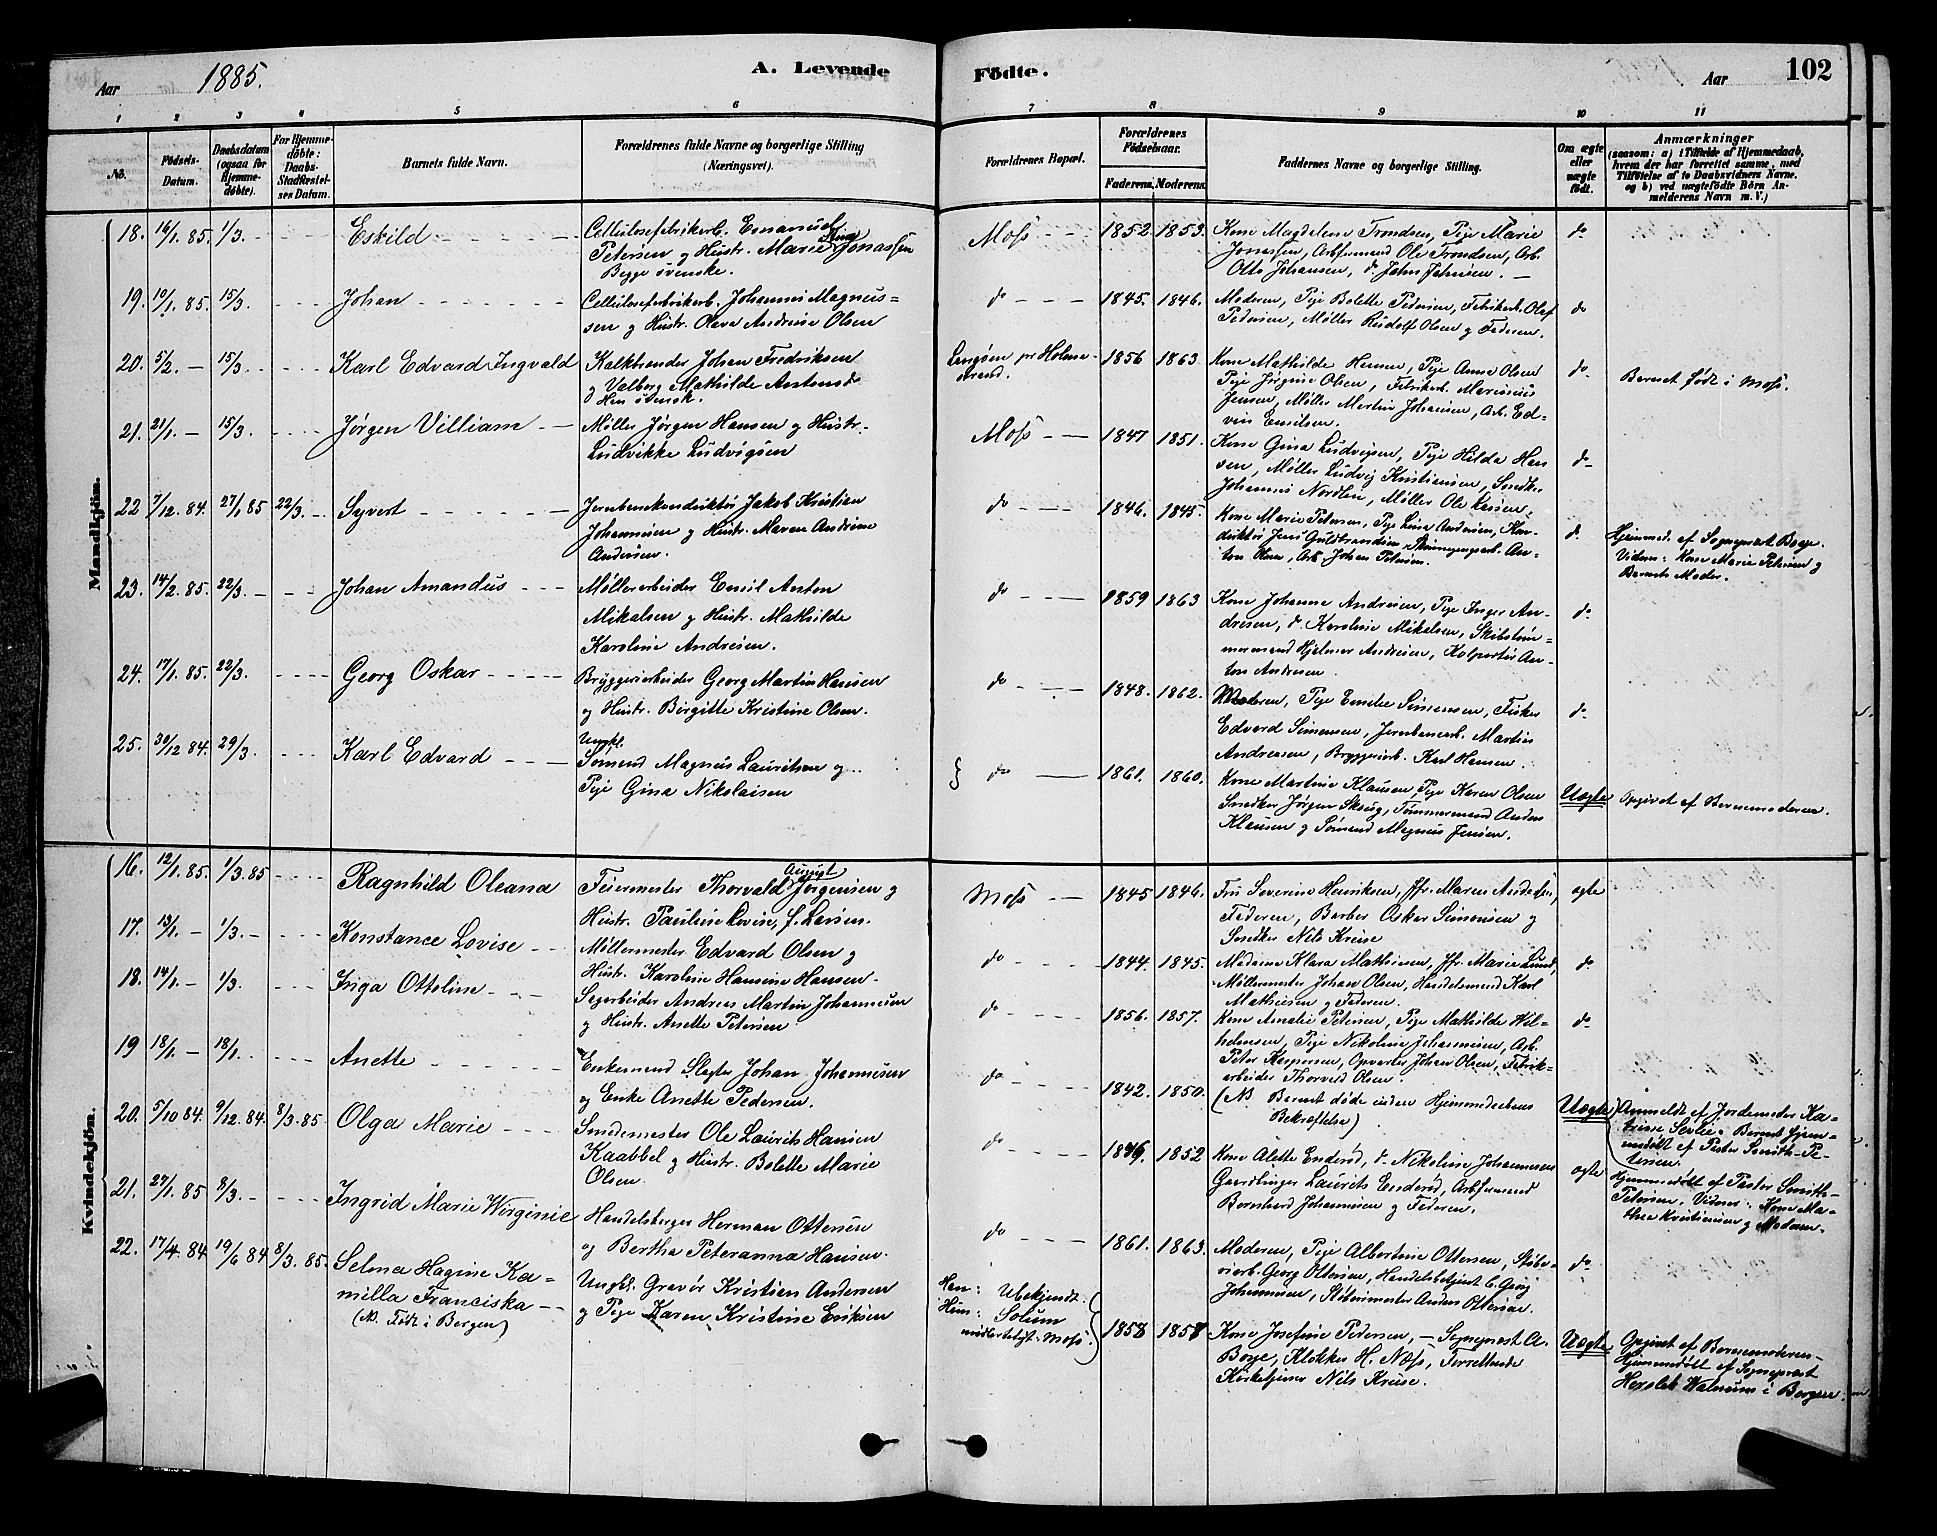 Aar 1885. A. Levende Födte. Aar 102
1 2 3 4 5 6 7 8 9 10 11
No.
Födsels-
Datum.
Daabsdatum
(ogsaa for
Hjemme-
döbte).
For Hjemme-
döbte:
Daabs-
Stadfæstel-
ses Datum.
Barnets fulde Navn.
Forældrenes fulde Navne og borgerlige Stilling
(Næringsvei).
Forældrenes Bopæl.
Forældrenes
Födselsaar.
Faderens. Moderens.
Faddernes Navne og borgerlige Stilling.
Om ægte
eller
uægte
født.
Anmærkninger
(saasom: a) i Tilfælde af Hjemmedaab,
hvem der har forrettet samme, med
Tilföielse af to Daabsvidners Navne,
og b) ved uægtefödte Börn An-
melderens Navn m. V.)
Mandkjön.
18. 16/1. 85. 1/3. Eskild
Cellulosefabrikarb. Emanuel
Petersen og Hustr. Marie Stina Jonassen
Begge svenske.
Moss 1852 1853.
Kone Magdelene Trondsen, Pige Marie
Jonassen, Arbformand Ole Trondsen, Arb.
Otto Johansen, do Jahn Jahnsen.
do
19. 10/1. 85. 15/3. Johan
Cellulosefabrikarb. Johannes Magnus=
sen og Hustr. Olava Andrine Olsen
do 1845. 1846.
Moderen, Pige Bolette Pedersen, Fabrikarb. Olaf
Pedersen, Møller Rudolf Olsen og Faderen.
do
20. 5/2. 15/3. Karl Edvard Ingvald
Kalkbrænder Johan Fredriksen
og Valborg Mathilde Antonsdr
Han svensk.
Langøen pr Holme-
strand. 1856 1863.
Kone Mathilde Hansen, Pige Anne Olsen
Pige Jørgine Olsen, Fabrikarb. Marinius
Jensen, Møller Martin Johansen, Arb. Ed-
vin Emilsen.
do Barnet født i Moss.
21. 21/1. 15/3. Jørgen Villiam
Møller Jørgen Hansen og Hustr.
Ludvikke Ludvigsen
Moss 1847 1851.
Kone Gina Ludvigsen, Pige Hilda Han
sen, Møller Ludvig Kristiansen, Snedker
Johannes Nordlie, Møller Ole Larsen.
do
22 7/12. 84. 27/1 85 22/3. Syvert
Jernbanekonduktør Jakob Kristian
Johannesen og Hustr. Maren Andrine
Andersen.
do 1846. 1845.
Kone Marie Petersen, Pige Lina Andersen, Kon-
duktør Jens Guldbrandsen, An-
ton Olsen, Arb. Johan Petersen.
do
Hjemmed. af Sognepræst Borge.
Vidner: Kone Marie Petersen og
Barnets Moder.
23. 14/2. 85. 22/3. Johan Amandus
Møllerarbeider Emil Anton
Mikalsen og Hustr. Mathilde
Karoline Andresen.
do 1859 1863
Kone Johanne Andresen, Pige Inger An-
dresen, do Karoline Mikalsen, Skibstøm=
mermand Hjelmer Andresen, Kolportør An-
ton Andresen.
do
24. 17/1. 85. 22/3. Georg Oskar
Bryggeriarbeider Georg Martin Hansen
og Hustr. Birgitte Kristine Olsen.
do 1848. 1862.
Moderen, Pige Emilie Simensen, Fisker
Edvard Simensen, Jernbanearb. Martin
Andreasen, Bryggeriarb. Karl Hansen.
do
25. 30/12 84. 29/3. Karl Edvard
Ungkl.
Sømand Magnus Lauritsen og
Pige Gina Nikolaisen
do 1861. 1860.
Kone Martine Klausen, Pige Karen Olsen
Snedker Jørgen Skoug, Tømmermand Anders
Klausen og Sømand Magnus Jensen.
Uægte Opgivet af Barnemoderen.
Kvindekjön.
16. 12/1. 85. 1/3. 85 Ragnhild Oleana
Feiermester Thorvald August Jørgensen og
Hustr. Pauline Lovise, f. Larsen.
Moss 1845 1846.
Fru Severine Henriksen, Jfr. Maren Andersen,
Faderen, Barber Oskar Simonsen og
Snedker Nils Kruse
ægte
17. 13/1. 1/3. Konstance Lovise
Møllermester Edvard Olsen og
Hustr. Karoline Hansine Hansen.
do 1844. 1845.
Madame Klara Mathisen, Jfr. Marie Lund,
Møllermester Johan Olsen, Handelsmand Karl
Mathisen og Faderen.
do
18. 14/1. 1/3. Inga Otteline
Sagarbeider Andreas Martin Johannesen
og Hustr. Anette Petersen
do 1856. 1857.
Kone Amalie Petersen, Pige Mathilde Wil=
helmsen, Pige Nikoline Johannesen, Arb.
Peter Kaspersen, Opvarter Johan Olsen, Fabrik-
arbeider Thorvald Olsen.
do
19 18/1. 18/1. Anette
Enkemand Slagter Johan Johannesen
og Enke Anette Pedersen.
do 1842. 1850.
(NB. Barnet døde inden Hjemmedaabens
Bekræftelse)
Uægte
Anmeldt af Jordemoder Ka-
trine Barnet hjem-
medøbt af Pastor Smith-Pe-
tersen.
20. 5/10 84. 9/12. 84. 8/3. 85 Olga Marie
Smedemester Ole Laurits Hansen
Kaabbel og Hustr. Bolette Marie
Olsen.
do 1849. 1852
Kone Alette Enderød, do Nikoline Johannesen
Gaardbruger Laurits Enderød, Arbformand
Bernhard Johannesen og Faderen.
ægte
Hjemmedøbt af Pastor Smith-
Petersen. Vidner: Kone Ma-
thea Kristiansen og Moderen.
21. 27/1. 85 8/3. Ingrid Marie Wirginie
Handelsborger Herman Ottersen
og Bertha Peteranna Hansen.
do 1861. 1863.
Moderen, Pige Albertine Ottersen, Støbe-
riarb. Georg Ottersen, Handelsbetjent C. Georg
Johannesen, Støberimester Anders Ottersen.
do
22. 17/4. 84 19/6 84 8/3. 85. Selma Hagine Ka=
milla Franciska
(NB. Født i Bergen)
Ungkl. Gravør Kristian Andersen
og Pige Karen Kristine Eriksen
Han: Ubekjendt.
Hun: Solum
midlertidigt Moss.
1858 1857
Kone Josefine Pedersen, Sognepræst A.
Borge, Klokker H. Næss, Forrettende
Kirketjener Nils Kruse.
Uægte
Opgivet af Barnemoderen-
Hjemmedøbt af Sognepræst
Hersleb Walnum i Bergen.